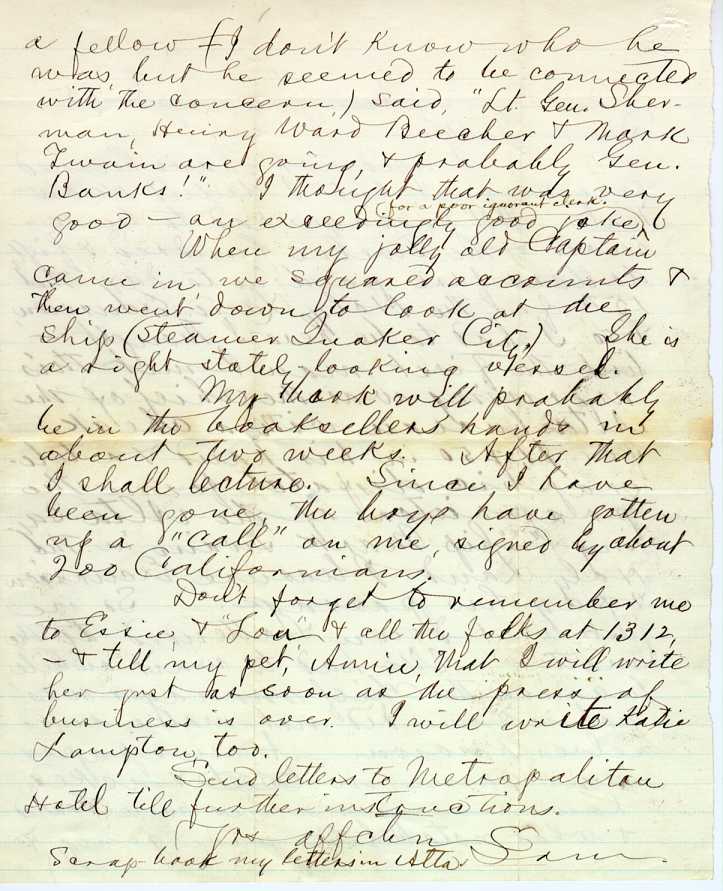 a fellow (I don't know who he
was, but he seemed to be connected
with the concern,) said, "Lt. Gen. Sher-
man, Henry Ward Beecher & Mark
Twain are going, & probably Gen.
Banks!" I thought that was very
(for a poor ignorant clerk.
good — an exceedingly good joke)
When my jolly old Captain
came in, we squared accounts &
then went down to look at the
ship (steamer Quaker City.) She is
a right stately-looking vessel.
My book will probably
be in the booksellers hands in
about two weeks. After that
I shall lecture. Since I have
been gone, the boys have gotten
up a "call" on me, signed by about
200 Californians.
Don't forget to remember me
to Essie & "Lou" & all the folks at 1312,
— & tell my pet, Annie, that I will write
her just as soon as the press of
business is over. I will write Katie
Lampton, too.
Send letters to Metropolitan
Hotel till further instructions.
Yrs affctn
Scrap-book my letters in Alta. Sam.